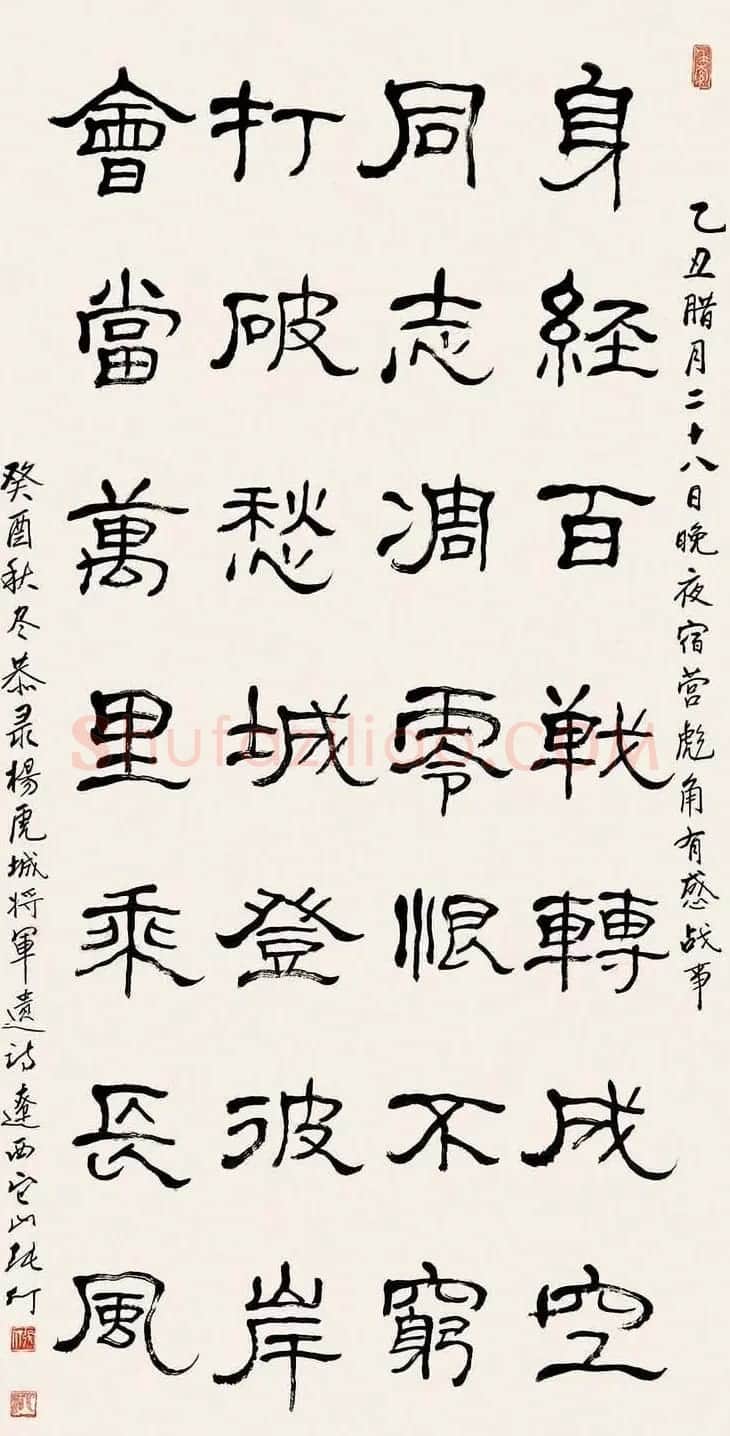 乙丑腊月二十八日晚夜宿营彪角有感战事
身経百戦轉成空
同志凋零恨不窮
打破愁城登彼岸
會當萬里乘長風
癸酉秋冬恭录楊虎城将軍遗詩遼西
Shufaziliao.COM